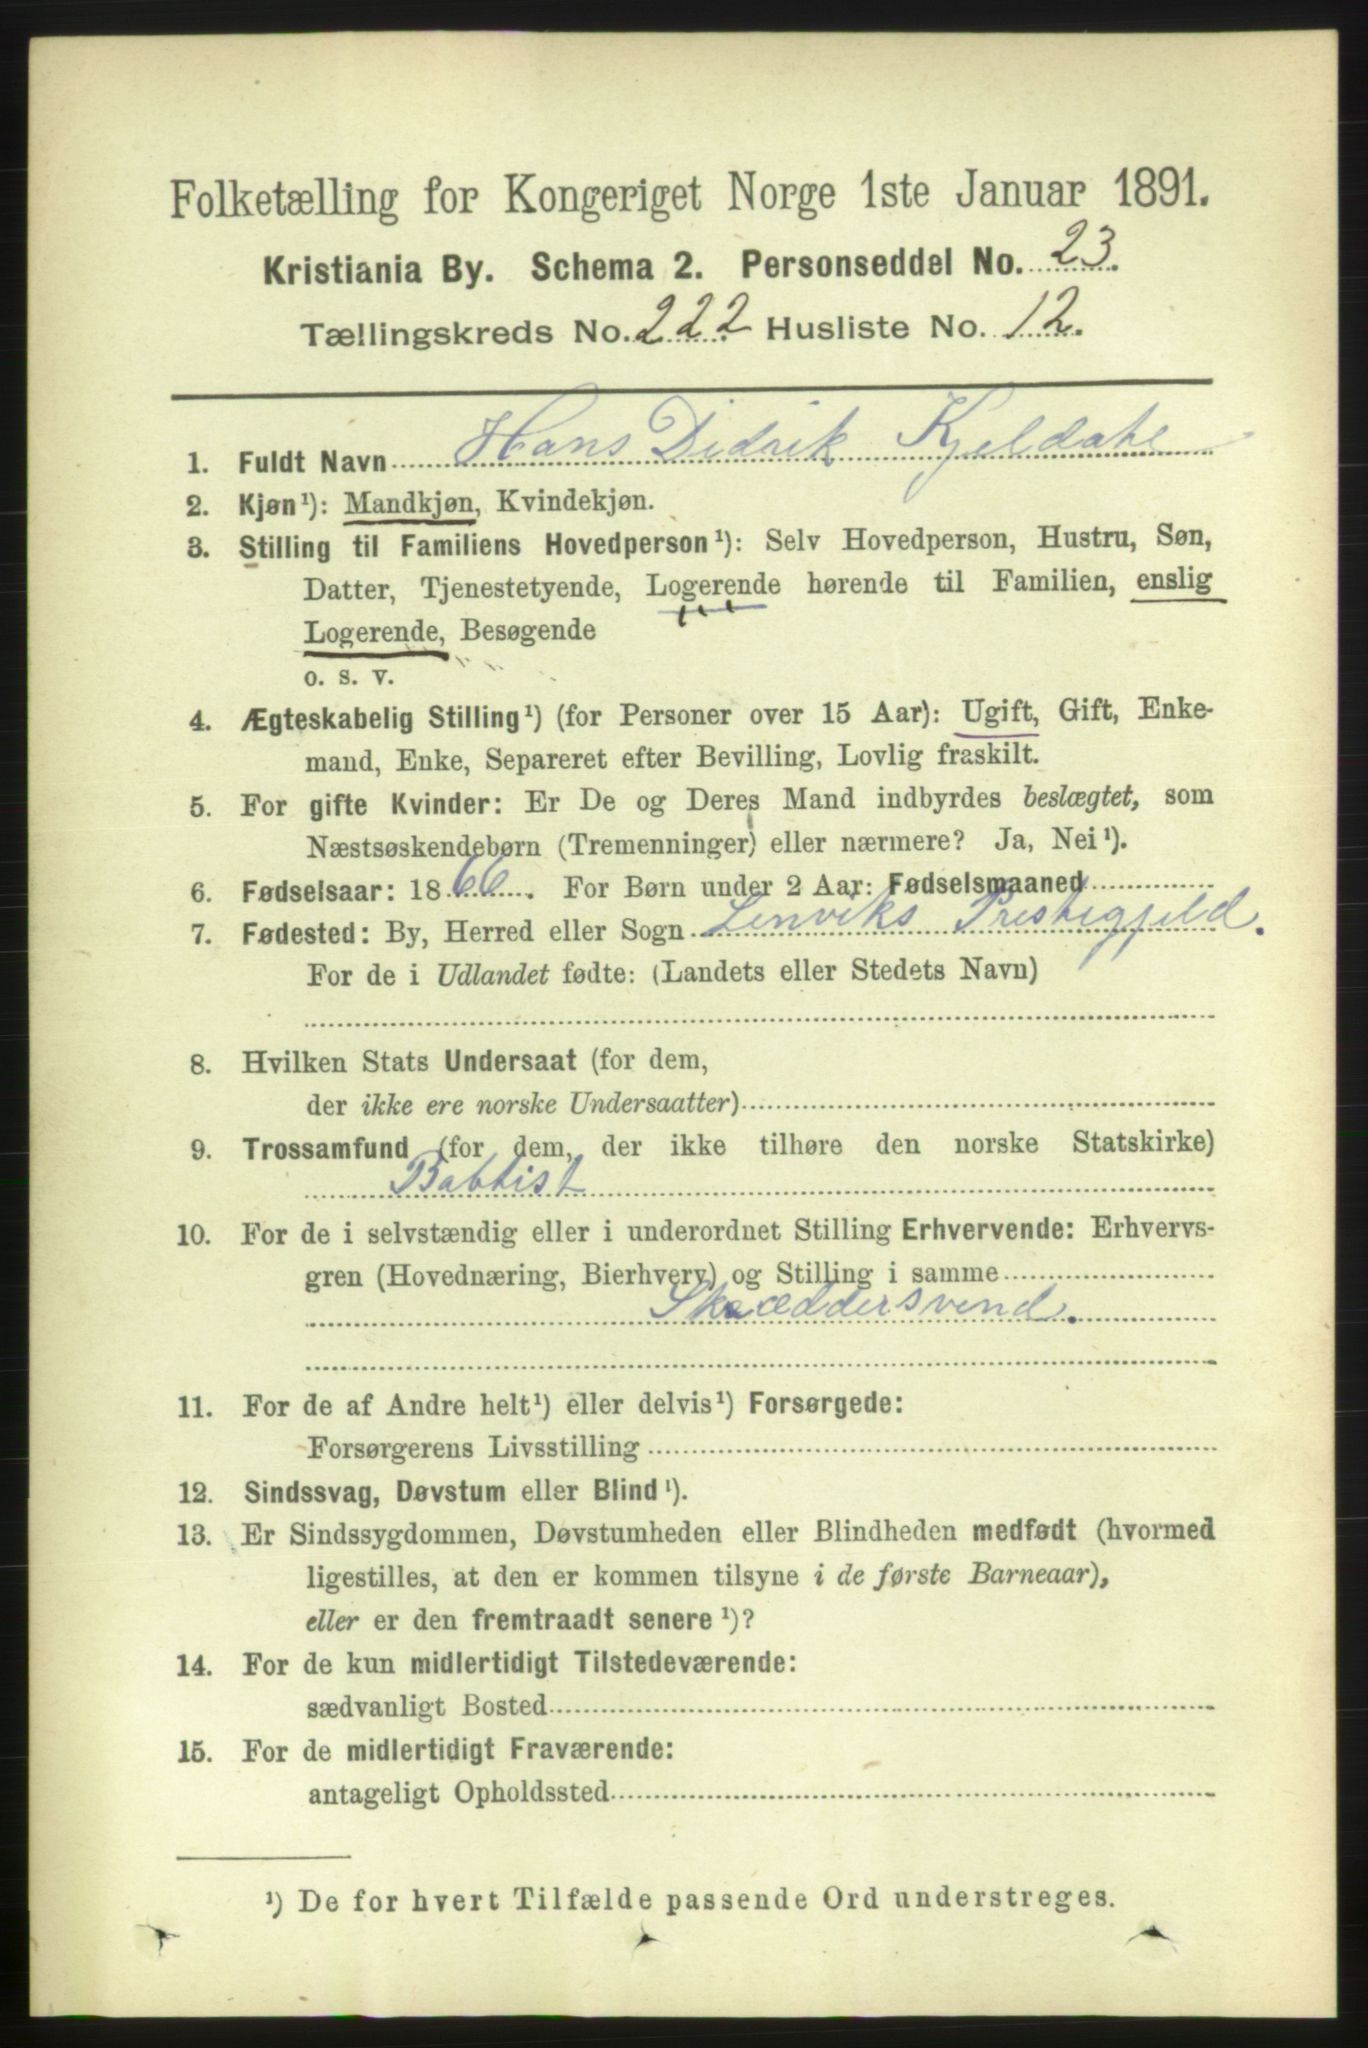 Folketælling for Kongeriget Norge 1ste Januar 1891.
Kristiania By. Schema 2. Personseddel No. 23.
Tællingskreds No. 222 Husliste No. 12.
1. Fuldt Navn Hans Didrik Kjeldahl
2. Kjøn¹): Mandkjøn, Kvindekjøn.
3. Stilling til Familiens Hovedperson¹): Selv Hovedperson, Hustru, Søn,
Datter, Tjenestetyende, Logerende hørende til Familien, enslig
Logerende, Besøgende
o. s. v.
4. Ægteskabelig Stilling¹) (for Personer over 15 Aar): Ugift, Gift, Enke-
mand, Enke, Separeret efter Bevilling, Lovlig fraskilt.
5. For gifte Kvinder: Er De og Deres Mand indbyrdes beslægtet, som
Næstsøskendebørn (Tremenninger) eller nærmere? Ja, Nei¹).
6. Fødselsaar: 1866. For Børn under 2 Aar: Fødselsmaaned
7. Fødested: By, Herred eller Sogn Lenviks Prestegjeld.
For de i Udlandet fødte: (Landets eller Stedets Navn)
8. Hvilken Stats Undersaat (for dem,
der ikke ere norske Undersaatter)
9. Trossamfund (for dem, der ikke tilhøre den norske Statskirke)
Babtist
10. For de i selvstændig eller i underordnet Stilling Erhvervende: Erhvervs-
gren (Hovednæring, Bierhverv) og Stilling i samme
Skræddersvend.
11. For de af Andre helt¹) eller delvis¹) Forsørgede:
Forsørgerens Livsstilling
12. Sindssvag, Døvstum eller Blind¹).
13. Er Sindssygdommen, Døvstumheden eller Blindheden medfødt (hvormed
ligestilles, at den er kommen tilsyne i de første Barneaar),
eller er den fremtraadt senere¹)?
14. For de kun midlertidigt Tilstedeværende:
sædvanligt Bosted
15. For de midlertidigt Fraværende:
antageligt Opholdssted
¹) De for hvert Tilfælde passende Ord understreges.